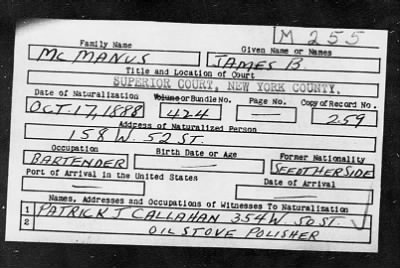 M 255
Family Name Given Name or Names
MCMANUS JAMES B.
Title and Location of Court
SUPERIOR COURT, NEW YORK COUNTY.
Date of Naturalization Volume or Bundle No. Page No. Copy of Record No.
OCT. 17, 1888 424 — 259
Address of Naturalized Person
158 W. 52 ST.
Occupation Birth Date or Age Former Nationality
BARTENDER — SEE OTHER SIDE
Port of Arrival in the United States Date of Arrival
— —
Names, Addresses and Occupations of Witnesses To Naturalization
1 PATRICK J CALLAHAN 354 W. 50 ST.
2 OIL STOVE POLISHER